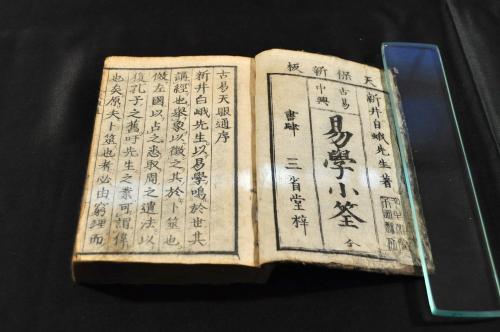 天保新板
新井白蛾先生著
古易中興
易學小筌 全
書肆 三省堂梓
古易天眼通序
新井白蛾先生以易學鳴於世其
講經也舉象以徵之其於卜筮也
倣左國以占之悉取周之遺法以
復孔子之舊吁先生之業可謂偉
也矣原夫卜筮也者必由窮理而